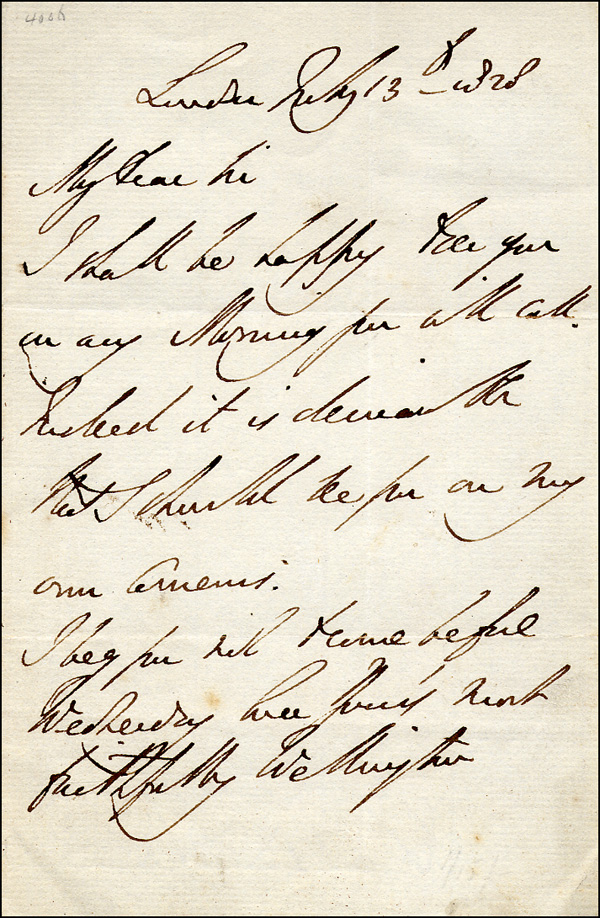 London July 13th 1828
My dear Sir
I shall be happy to see you
on any Morning you will call.
Indeed it is desirable
that I should see you on my
own
I beg you not to come before
Wednesday Yours most
faithfully Wellington